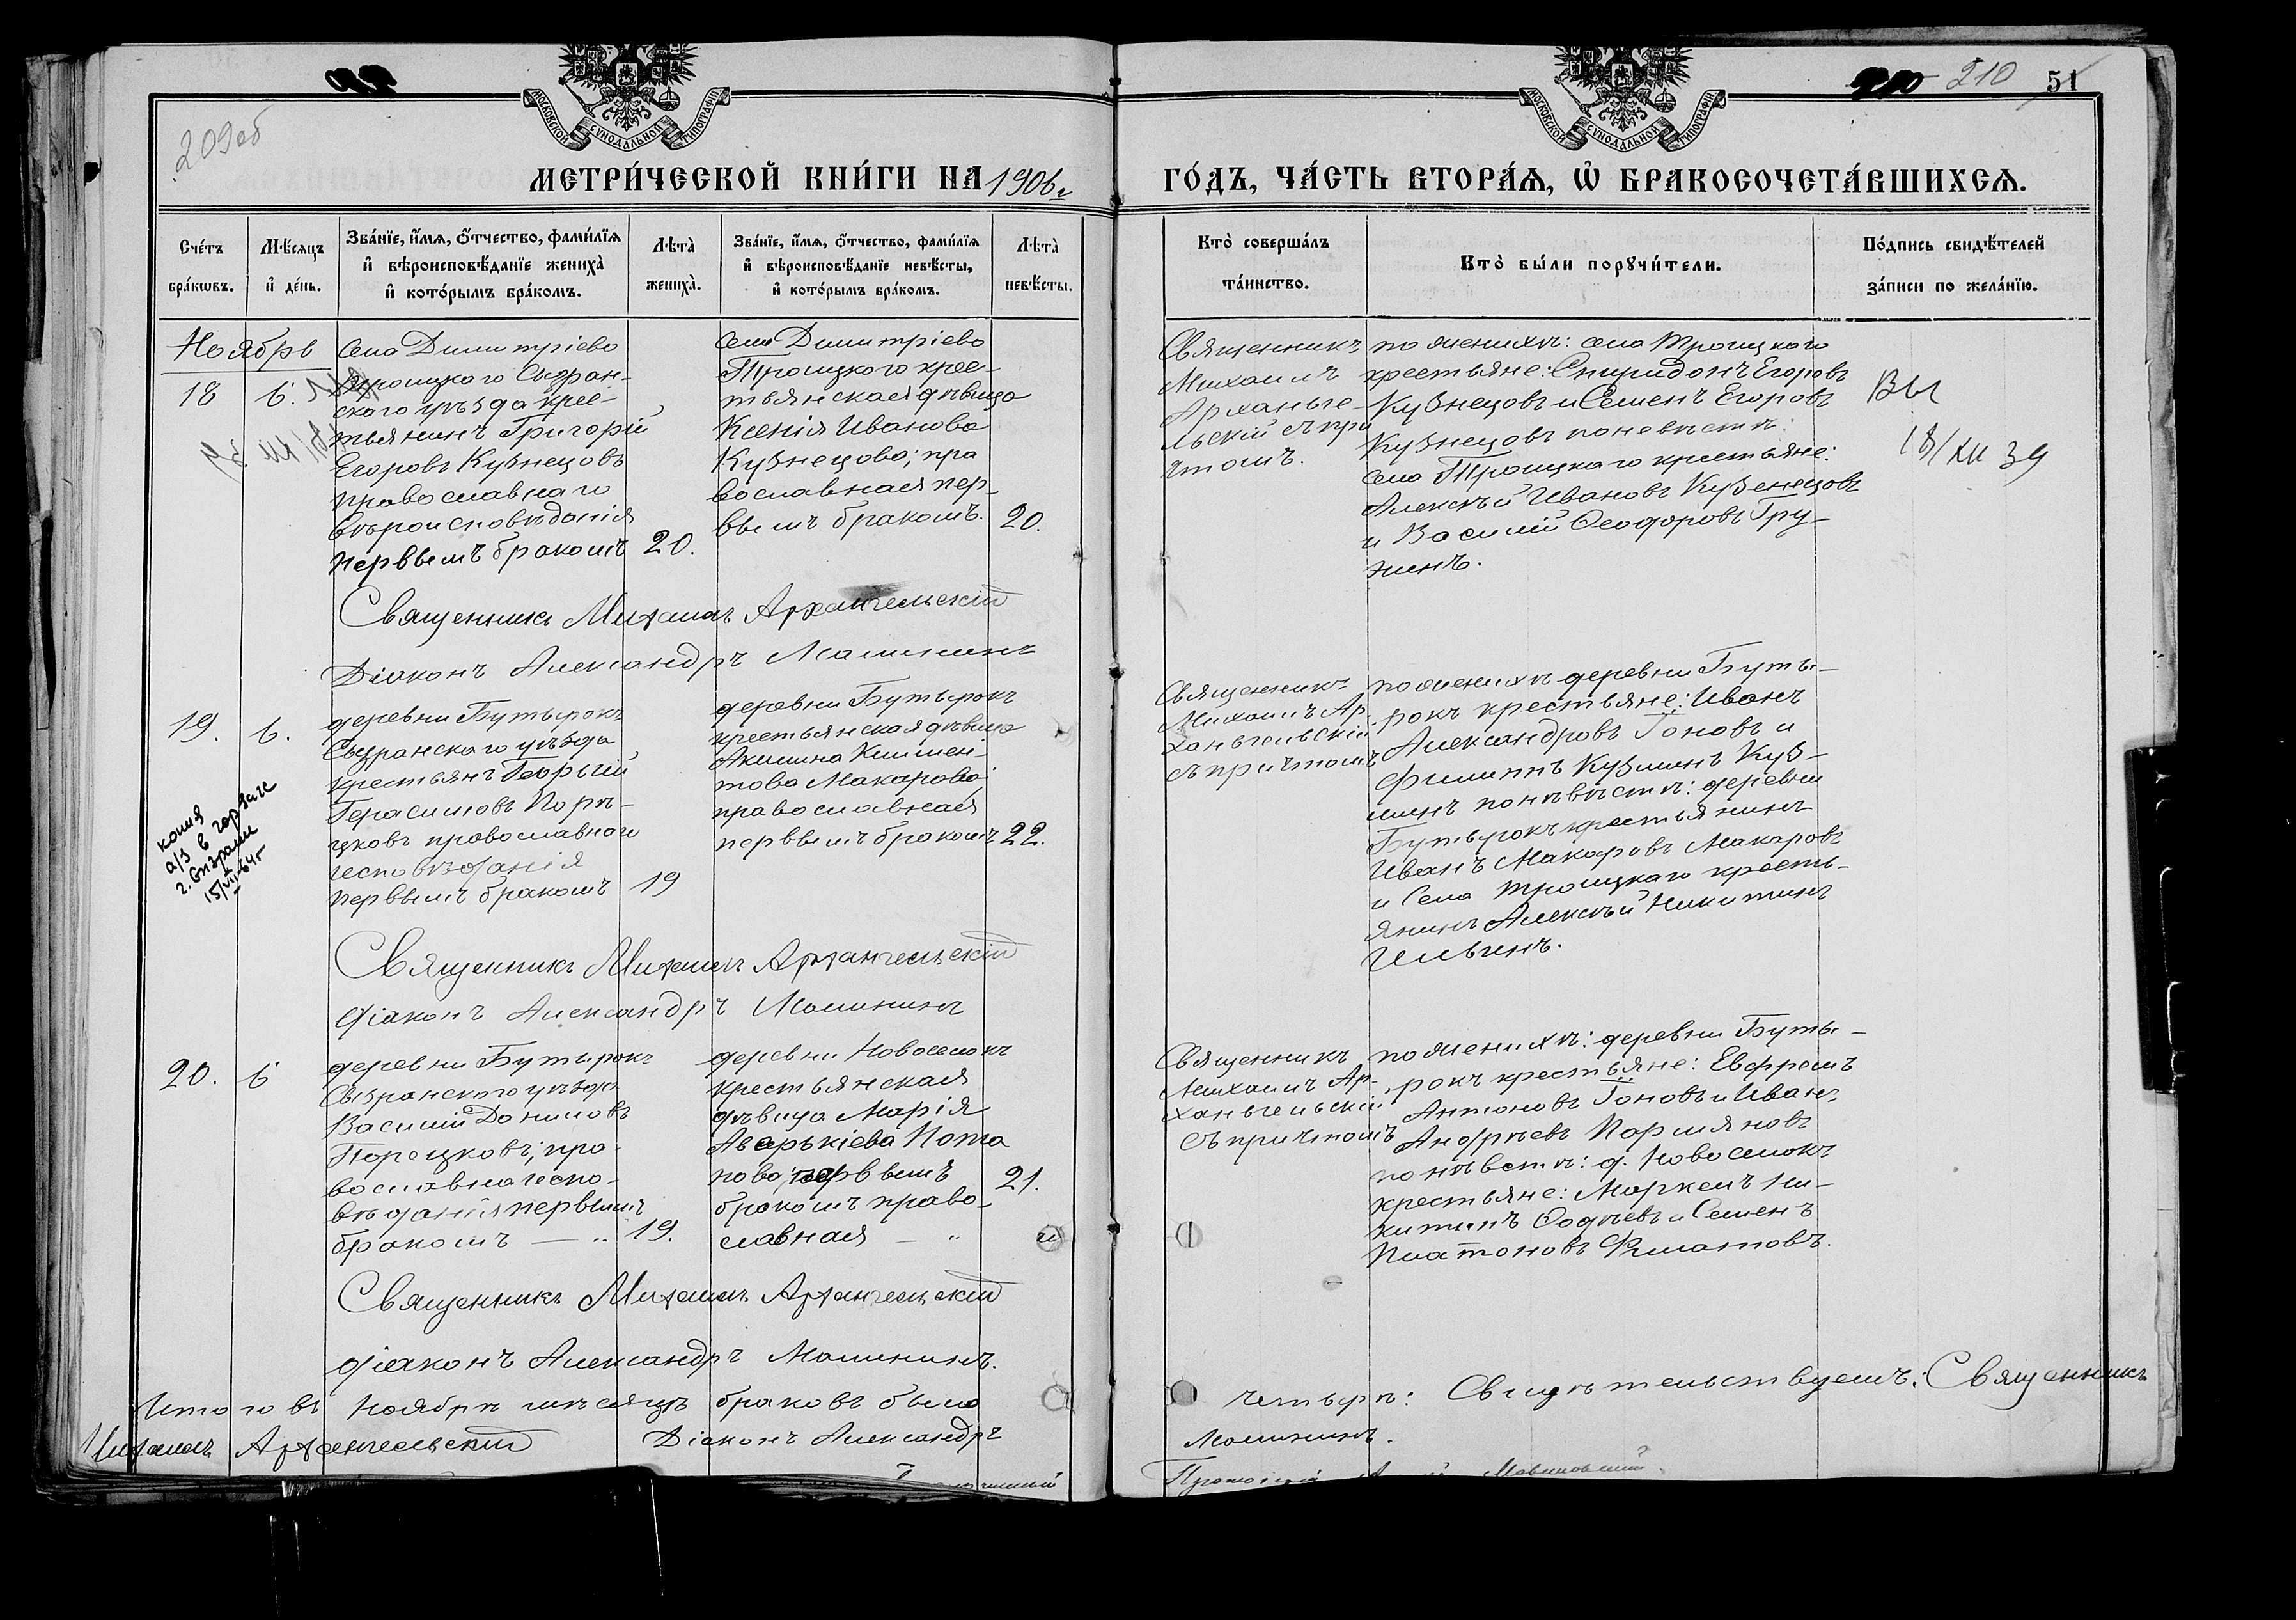 209об
МОСКОВСКОЙ СѴНОДАЛЬНОЙ ТИПОГРАФІИ
МЕТРИ́ЧЕСКОЙ КНИ́ГИ НА 1906 г
Сче́тъ бра́кѡвъ.
Мѣ́сяцъ и҆ де́нь.
Зва́нїе, и҆́мѧ, ѻ҆́тчество, фами́лїѧ и҆ вѣроисповѣ́данїе жениха̀ и҆ кото́рымъ бра́комъ.
Лѣта̀ жениха̀.
Зва́нїе, и҆́мѧ, ѻ҆́тчество, фами́лїѧ и҆ вѣроисповѣ́данїе невѣ́сты, и҆ кото́рымъ бра́комъ.
Лѣта̀ невѣ́сты.
Ноябрь
18
6.
Села Димитріево
Троицкаго Сызран-
скаго уѣзда крес-
тьянинъ Григорій
Егоровъ Кузнецовъ
православнаго
вѣроисповѣданія
первымъ бракомъ
20.
Села Димитріево
Троицкаго крес-
тьянская дѣвица
Ксенія Иванова
Кузнецова; пра
вославная пер-
вымъ бракомъ.
20.
Священникъ Михаилъ Архангельскій
Діаконъ Александръ Малининъ
19.
6.
деревни Бутырокъ
Сызранскаго уѣзда
крестьянъ Георгій
Герасимовъ Порѣ-
цковъ православнаго
исповѣданія
первымъ бракомъ
19
деревни Бутырокъ
крестьянская дѣвица
Акилина Климен-
това Макарова;
православная
первымъ бракомъ
22.
копия
а/з в горзагс
г. Сызрани
15/VI-64г
Священникъ Михаилъ Архангельскій
Діаконъ Александръ Малининъ
20.
6
деревни Бутырокъ
Сызранскаго уѣзда
Василій Даниловъ
Порецковъ; пра-
вославна испо-
вѣданія первымъ
бракомъ — „
19.
деревни Новоселокъ
крестьянская
дѣвица Марія
Аверькіева Пота
пова; первымъ
бракомъ право-
славная — „
21.
Священникъ Михаилъ Архангельскій
Діаконъ Александръ Малининъ.
Итого въ Ноябрѣ мѣсяцѣ браковъ было
Михаилъ Архангельскій Діаконъ Александръ
210 51
МОСКОВСКОЙ СѴНОДАЛЬНОЙ ТИПОГРАФІИ
ГО́ДЪ, ЧА́СТЬ ВТОРА́Ѧ, Ѡ҆ БРАКОСОЧЕТА́ВШИХСѦ.
Кто̀ соверша́лъ та́инство.
Кто̀ бы́ли порꙋчи́тели.
По́дпись свидѣ́телей за́писи по жела́нїю.
Священникъ
Михаилъ
Арханге-
льскій съ при
чтомъ.
по женихѣ: села Троицкаго
крестьяне: Спиридонъ Егоровъ
Кузнецовъ и Семенъ Егоровъ
Кузнецовъ по невѣстѣ:
села Троицкаго крестьяне:
Алексѣй Ивановъ Кузнецовъ
и Василій Ѳеодоровъ Гру-
зинъ.
18/XII 39
Священникъ
Михаилъ Ар-
хангельскій
съ причтомъ
по женихѣ деревни Буты-
рокъ крестьяне: Иванъ
Александровъ Гоновъ и
Филиппъ Кузминъ Куз-
минъ по нѣвѣстѣ: деревни
Бутырокъ крестьянинъ
Иванъ Макаровъ Макаровъ
и Села Троицкаго кресть-
янинъ Алексѣй Никитинъ
Ильинъ.
Священникъ
Михаилъ Ар-
хангельскій
съ причтомъ
по женихѣ: деревни Буты-
рокъ крестьяне: Евфремъ
Антоновъ Гоновъ и Иванъ
Андрѣевъ Парміяновъ
по нѣвстѣ: д. Новоселокъ
крестьяне: Маркелъ Ни-
китинъ Ѳадѣевъ и Семенъ
Платоновъ Филатовъ.
четыре: Свидѣтельствуемъ: Священникъ
Малининъ.